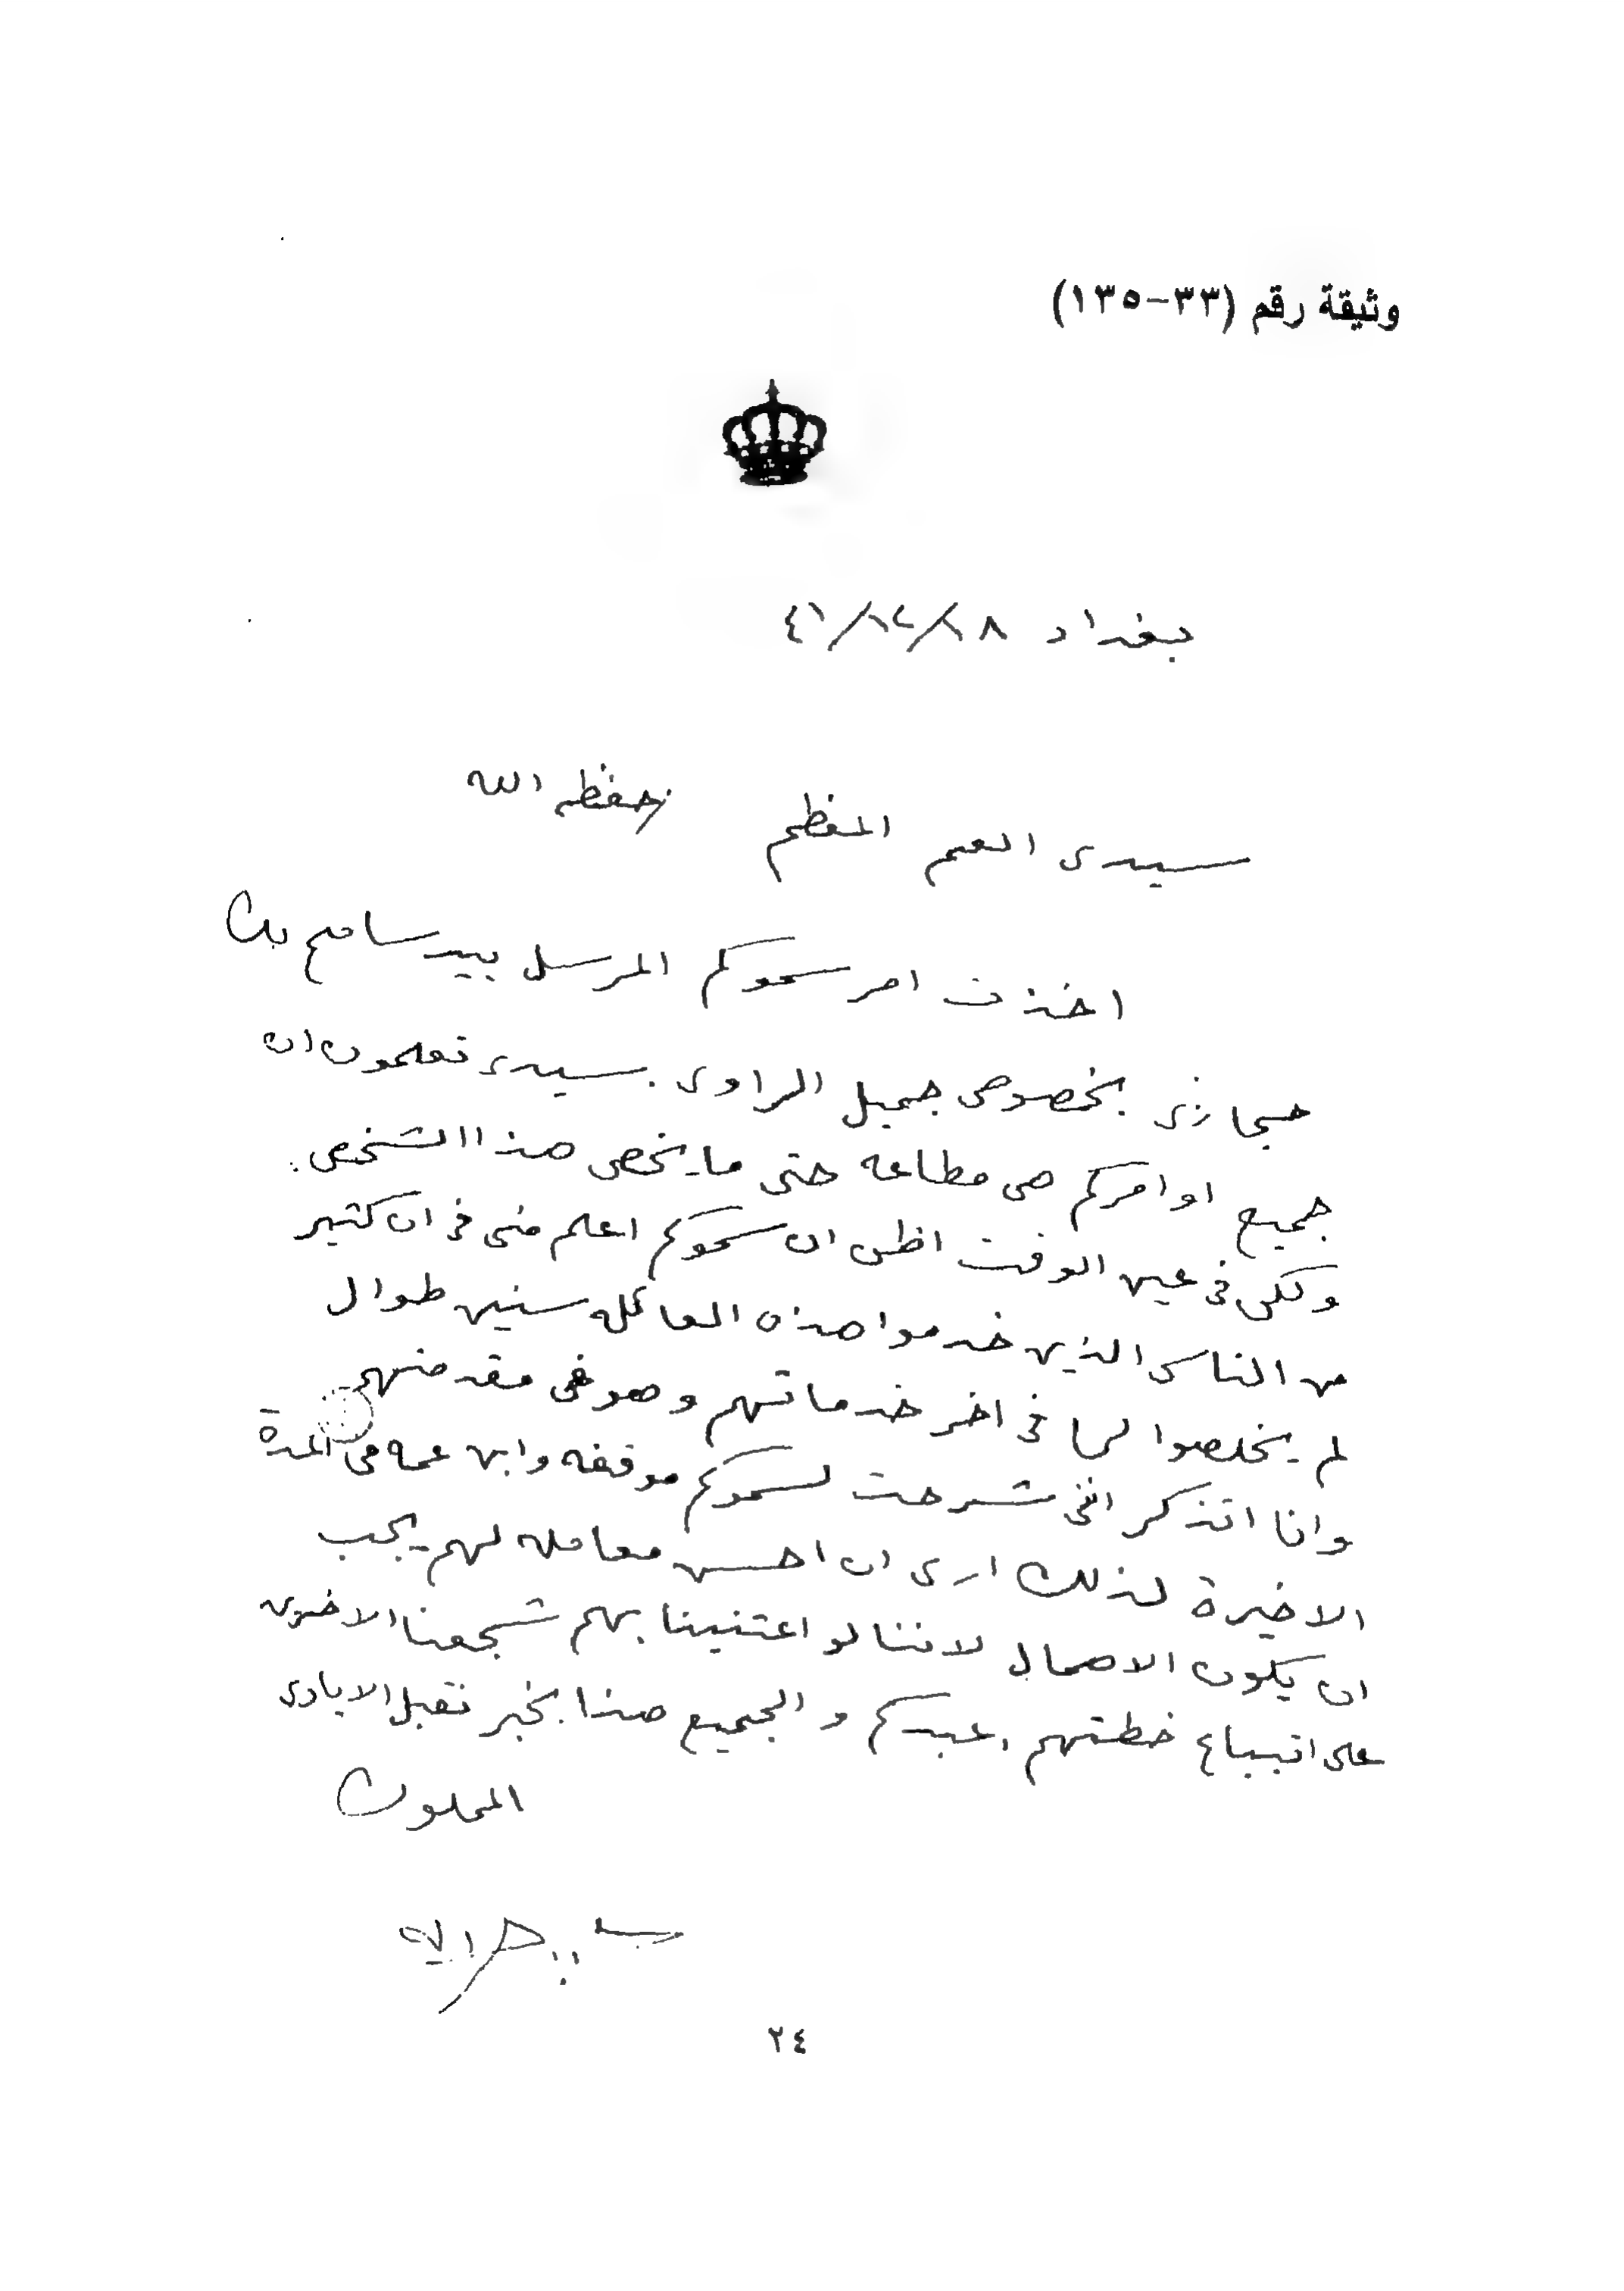 وثيقة رقم (٣٣-١٣٥)
بغداد ١٨/١٢/٤١
سيدى العم المعظم حفظه الله
اخذت امر سموكم المرسل بيد سامح بك
حجازى بخصوص جميل الراوى. سيدى تعلمون ان
جميع اوامركم هى مطاعه حتى ما يخص هذا الشخص.
ولكن فى عين الوقت اظن ان سموكم اعلم منى فى ان كثير
من الناس الذين خدموا هذه العائله سنين طوال
لم يخلصوا لها فى اخر خدماتهم وهو فى مقدمتهم
وانا اتذكر اننى شرحت لسموكم موقفه وابن عمه فى المدة
الاخيرة لذلك ارى ان احسن معامله لهم يجب
ان يكون الاهمال لاننا لو اعتنينا بهم شجعنا الاخرين
على اتباع خطتهم. عبدكم والجميع هنا بخير نقبل الايادى
المملوك
٢٤